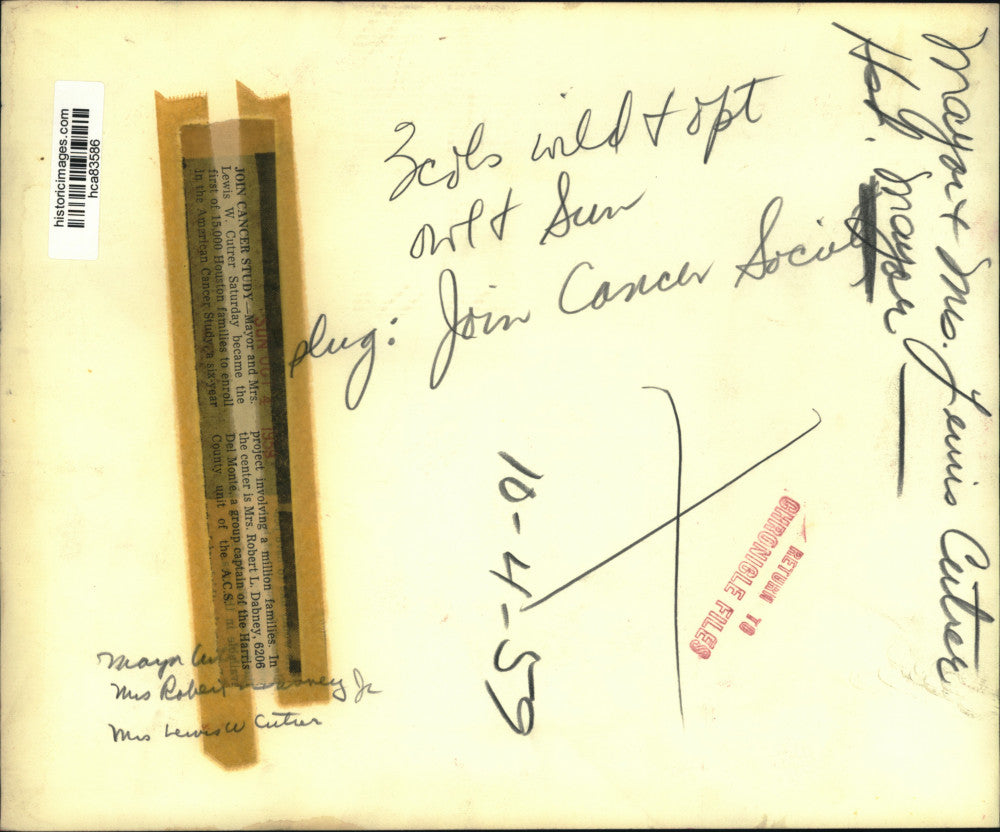 historicimages.com
hca83586
3 cols wild + opt
out + Sun
plug: Join Cancer Society
Mayor + Mrs. Lewis Cutrer
Hou. Mayor
10-4-59
RETURN TO
CHRONICLE FILES
SUN OCT 4 1959
JOIN CANCER STUDY—Mayor and Mrs.
Lewis W. Cutrer Saturday became the
first of 15,000 Houston families to enroll
in the American Cancer Study, a six-year
project involving a million families. In
the center is Mrs. Robert L. Dabney, 6206
Del Monte, a group captain of the Harris
County unit of the A.C.S.
Mayor
Mrs Robert Dabney Jr
Mrs Lewis W Cutrer